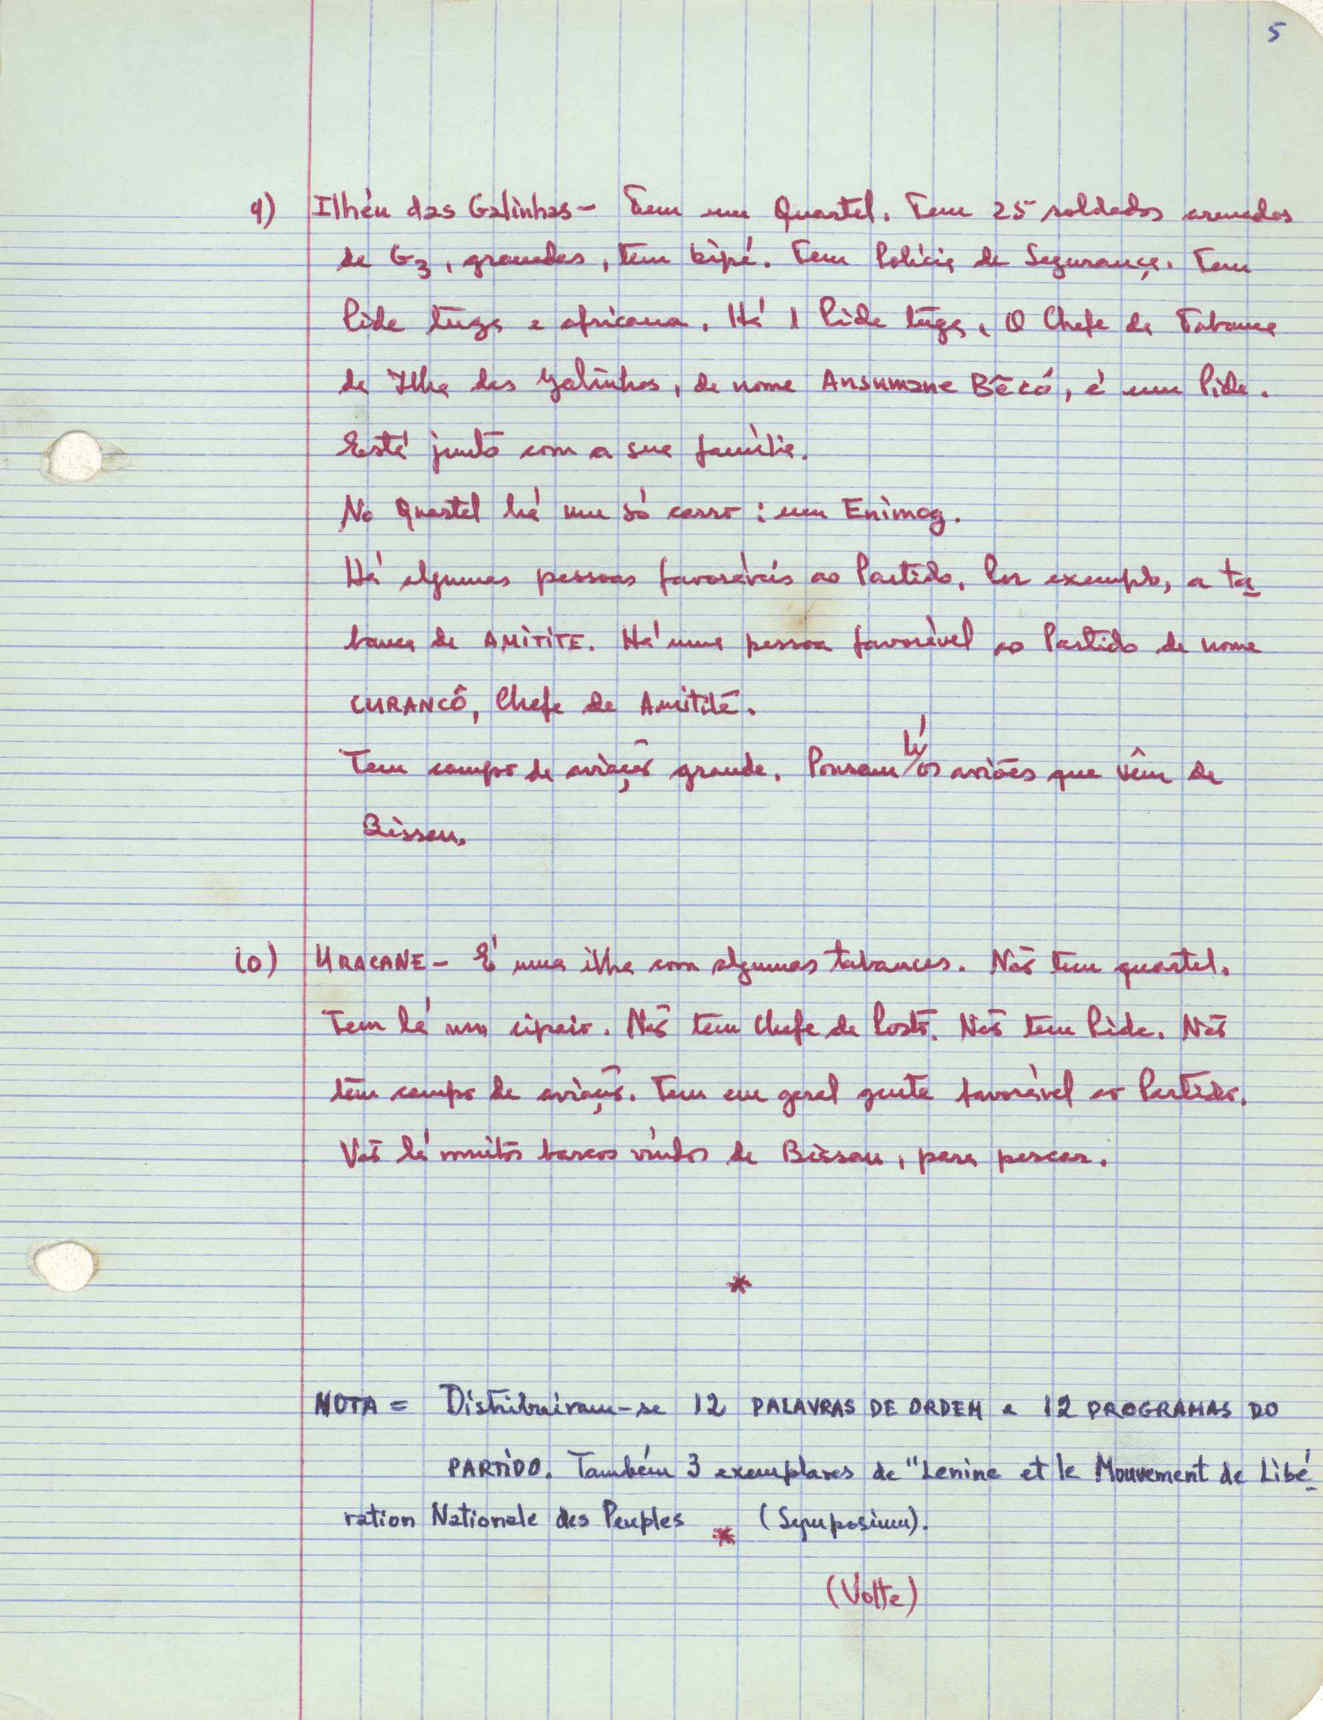 5
9) Ilhéu das Galinhas - Tem um Quartel. Tem 25 soldados armados
de G3, granadas, tem bipé. Tem Polícia de Segurança. Tem
Pide tuga e africana. Há 1 Pide tuga. O Chefe da Tabanca
da Ilha das Galinhas, de nome Ansumane Bêcó, é um Pide.
Está junto com a sua família.
No Quartel há um só carro: um Enimog.
Há algumas pessoas favoráveis ao Partido. Por exemplo, a ta
banca de AMITITE. Há uma pessoa favorável ao Partido de nome
CURANCÔ, Chefe de Amitite.
Tem campo de aviação grande. Pousam lá os aviões que vêm de
Bissau.
10) URACANE - É uma ilha com algumas tabancas. Não tem quartel.
Tem lá um cipaio. Não tem Chefe de Posto. Não tem Pide. Não
tem campo de aviação. Tem em geral gente favorável ao Partido.
Vão lá muitos barcos vindos de Bissau, para pescar.
*
NOTA = Distribuiram-se 12 PALAVRAS DE ORDEM e 12 PROGRAMAS DO
PARTIDO. Também 3 exemplares de "Lenine et le Mouvement de Libé
ration Nationale des Peuples (Symposium).
*
(Volte)